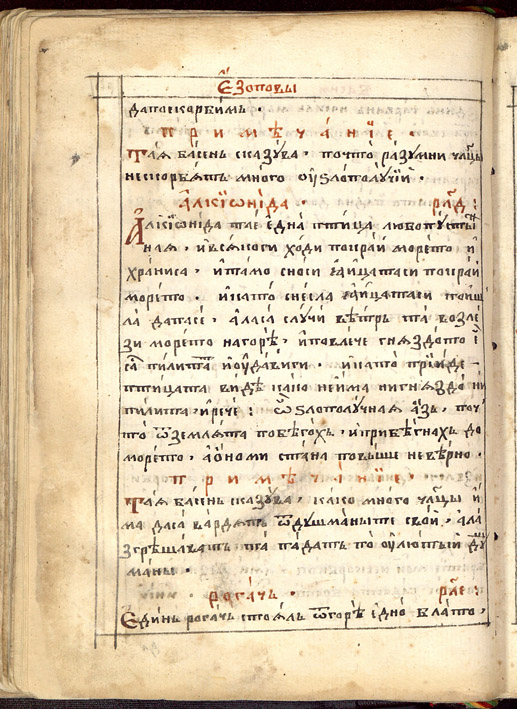 Е҆зоповы
дапоскорбимь .
Примѣча́нїе .
Таѧ ба́сень сказу́ва , почто ра́зумни члц҃ы
нескорбѧтъ много ѹ҆ ѕлополу́чїи .
А҆лкїѡни́да . рл҃д :
А҆лкїѡни́да тае е҆дна̀ пти́ца любопу́сты
ннаѧ , и҆всѧкоги хо́ди покрай морето и҆
хра́нисѧ , и҆тамо сноси ꙗ҆йцатаси покрай
морето . и҆като снесла ꙗ҆йцатаси пойш
ла да́пасе , а҆ласа случи вѣтрь та возле
зи морето нагорѣ , и҆повлече гнѧздото є҆
са пилита и҆оуда́виги . и҆като прїиде
птицата видѣ како неи҆ма нигнѧздо ни
пилита , и҆рече : ѽ ѕлополу́чнаѧ а҆зь , поч
то ѿземлѧта побѣгохъ , и҆прибѣгнахъ до
морето , а҆ѻноми стана повыше невѣрно .
Примѣча́нїе .
Таѧ басень сказу́ва , како много члц҃ы и҆
ма даса ва́рдѧтъ ѿдушманыте свои , а҆ла
згрѣшаватъ та па́датъ по ѹ҆лютый ду
маны .
Рога́чь . рл҃е :
Е҆динь рога́чь стоѧль ѿгорѣ е҆дно блато ,